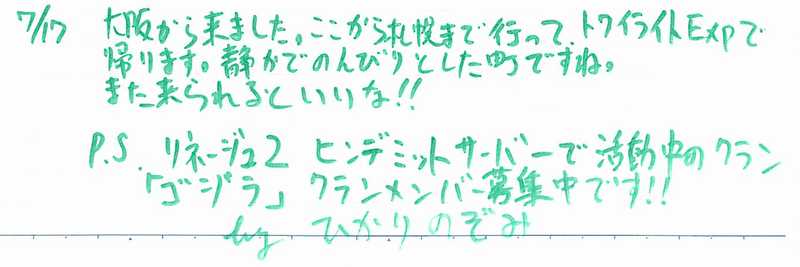 7/17 大阪から来ました。ここから札幌まで行って、トワイライトExpで
帰ります。静かでのんびりとした町ですね。
また来られるといいな!!
P.S. リネージュ2 ヒンデミットサーバーで活動中のクラン
「ゴジラ」クランメンバー募集中です!!
by ひかりのぞみ